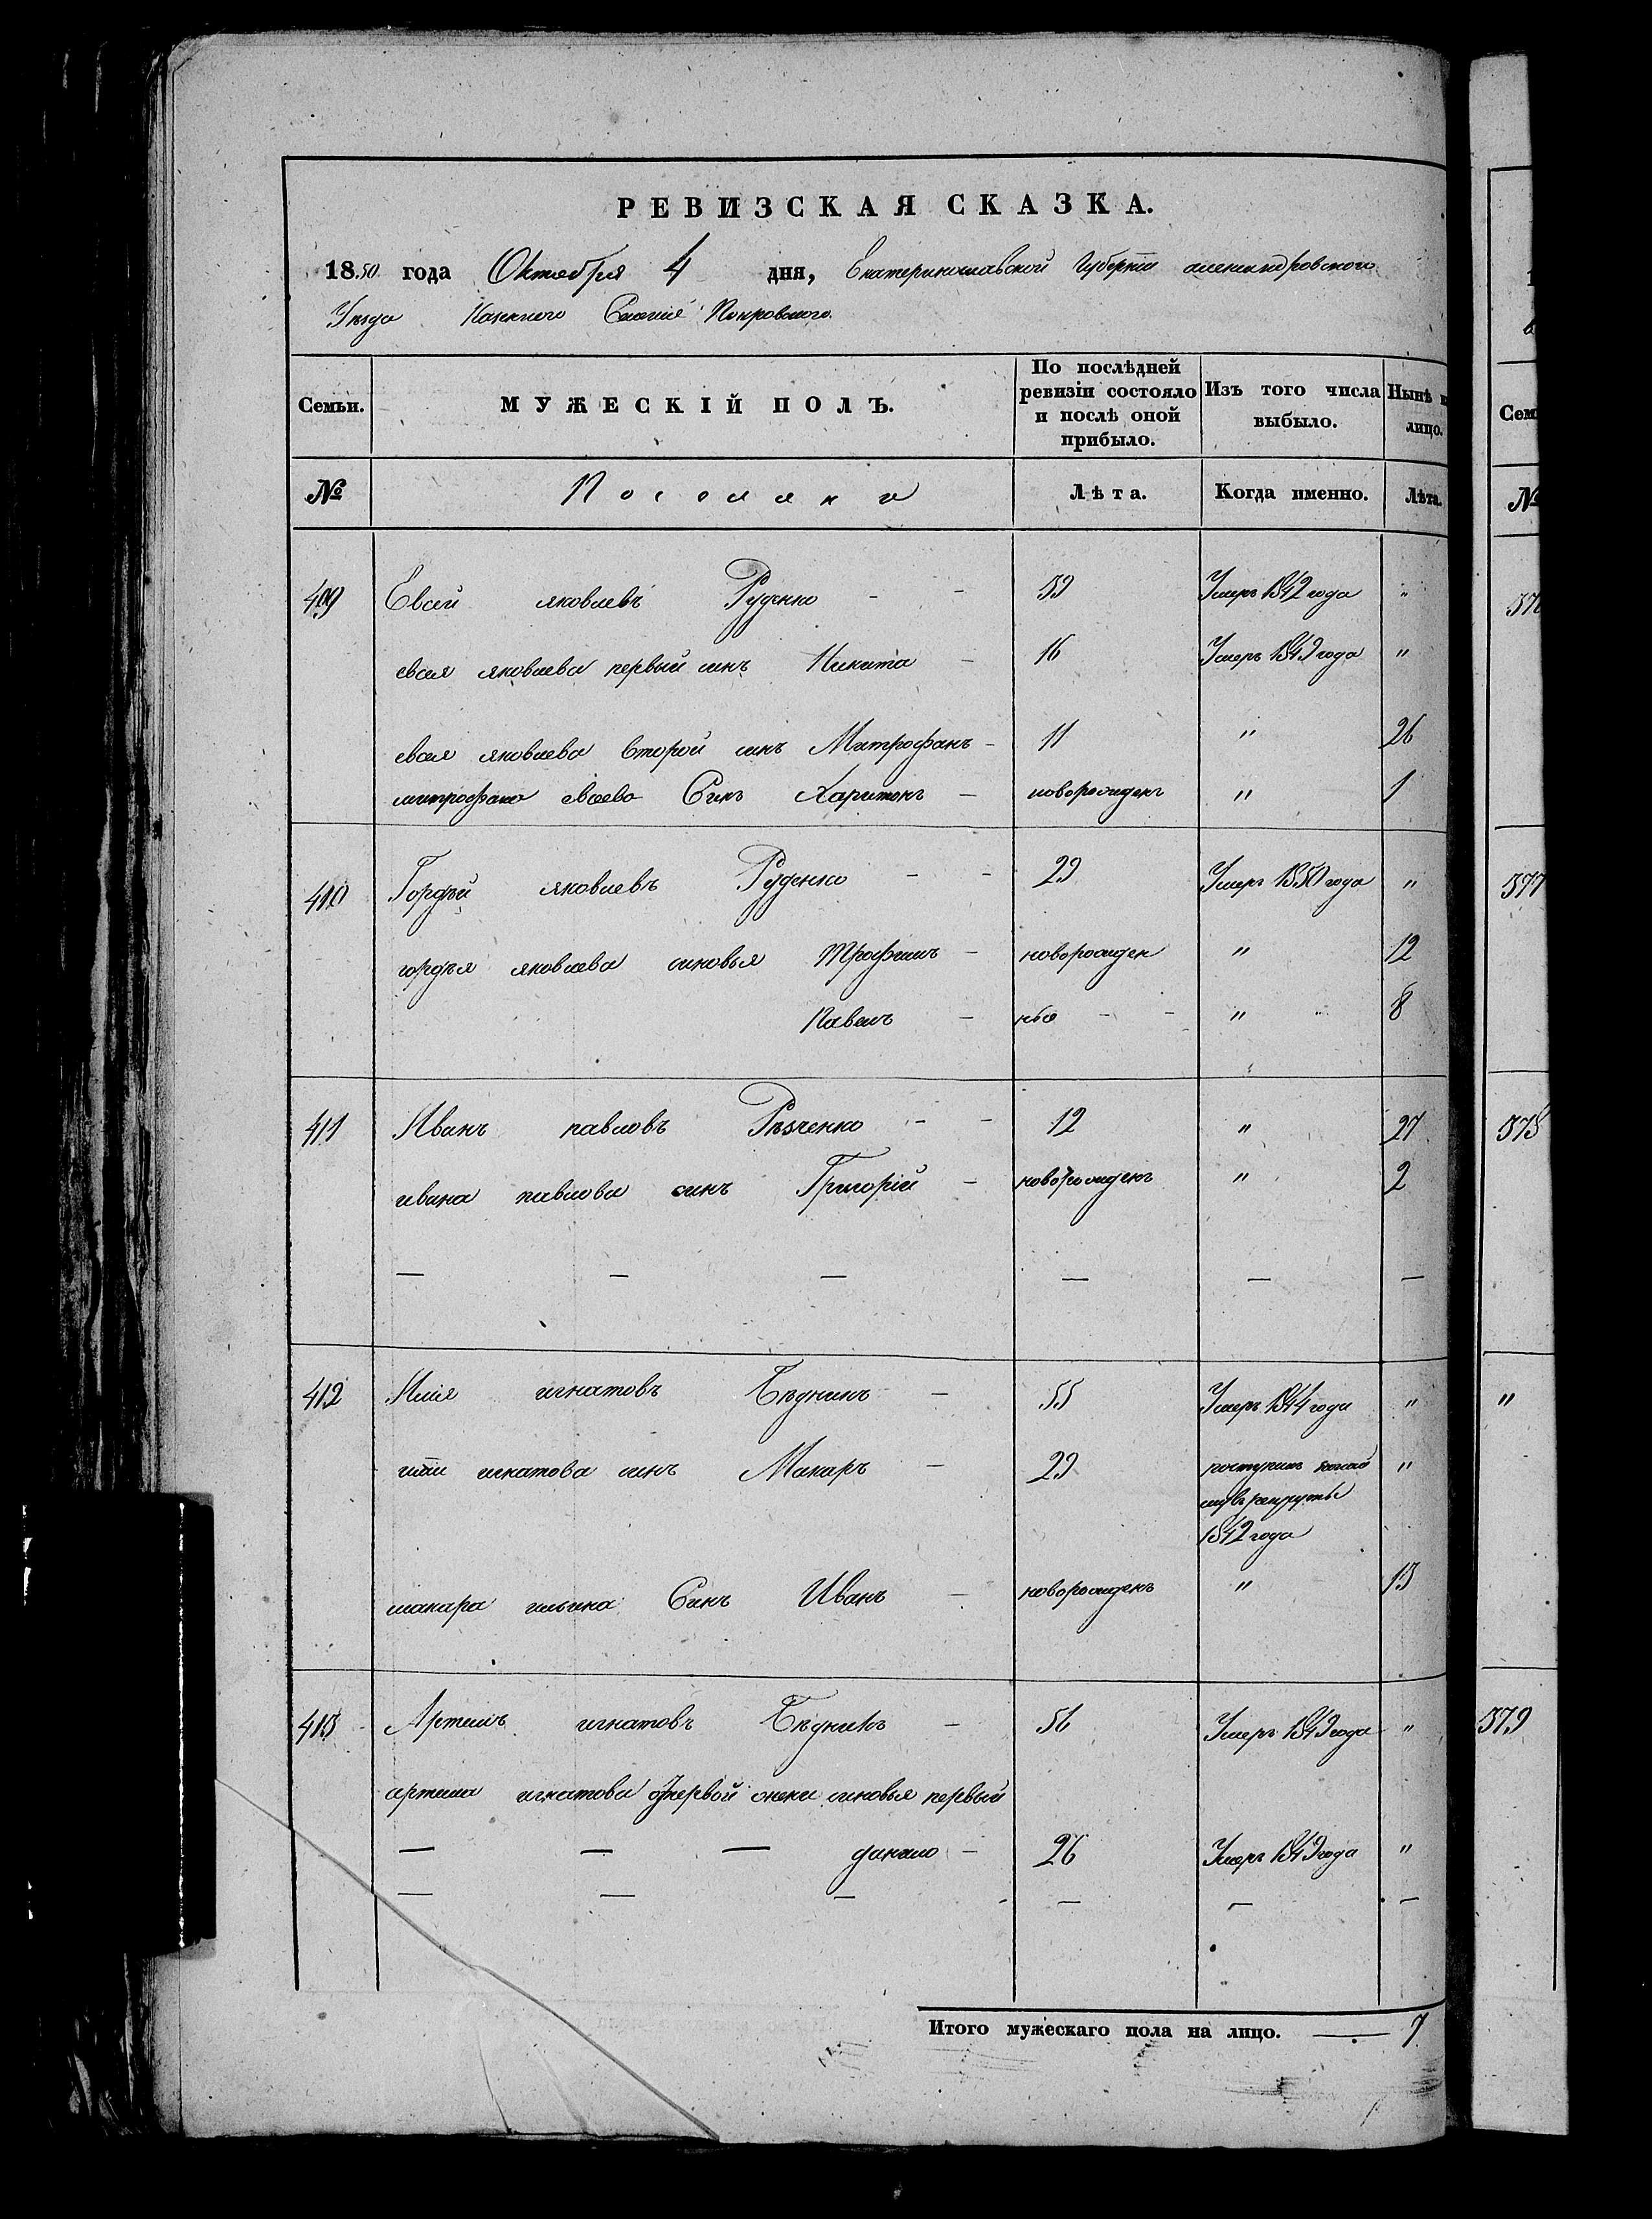 РЕВИЗСКАЯ СКАЗКА.
1850 года Октября 4 дня, Екатеринославской Губерніи александровского
Уезда Казенного Селенія Покровского.
Семьи. МУЖЕСКІЙ ПОЛЪ. По послѣдней ревизіи состояло и послѣ оной прибыло. Изъ того числа выбыло. Нынѣ на лицо.
№ Поселяне Лѣта. Когда именно. Лѣта.
409 Евсей яковлевъ Руденко - - 59 Умеръ 1842 года "
евсея яковлева первый синъ Никита - 16 Умеръ 1849 года "
евсея яковлева Второй синъ Митрофанъ - 11 " 26
митрофана евсеева Синъ Харитонъ - новорожденъ " 1
410 Гордѣй яковлевъ Руденко - - 29 Умеръ 1850 года "
гордѣя яковлева синовья Трофимъ - новорожден " 12
Павелъ - тоже - - " 8
411 Иванъ павловъ Рѣзченко - - 12 " 27
ивана павлова синъ Григорій - новорожденъ " 2
— — — — — —
412 Илія игнатовъ Бѣдникъ - 55 Умеръ 1844 года "
иліи игнатова синъ Макаръ - 29 поступилъ
рекруты
1842 года "
макара ильина Синъ Иванъ - новорожденъ " 13
413 Артемъ игнатовъ Бѣдникъ - 56 Умеръ 1849 года "
артема игнатова отпервой жени синовья первый
— — — данило - 26 Умеръ 1849 года "
— — — — — —
Итого мужескаго пола на лицо. — 7
Сем
№
576
577
578
"
579